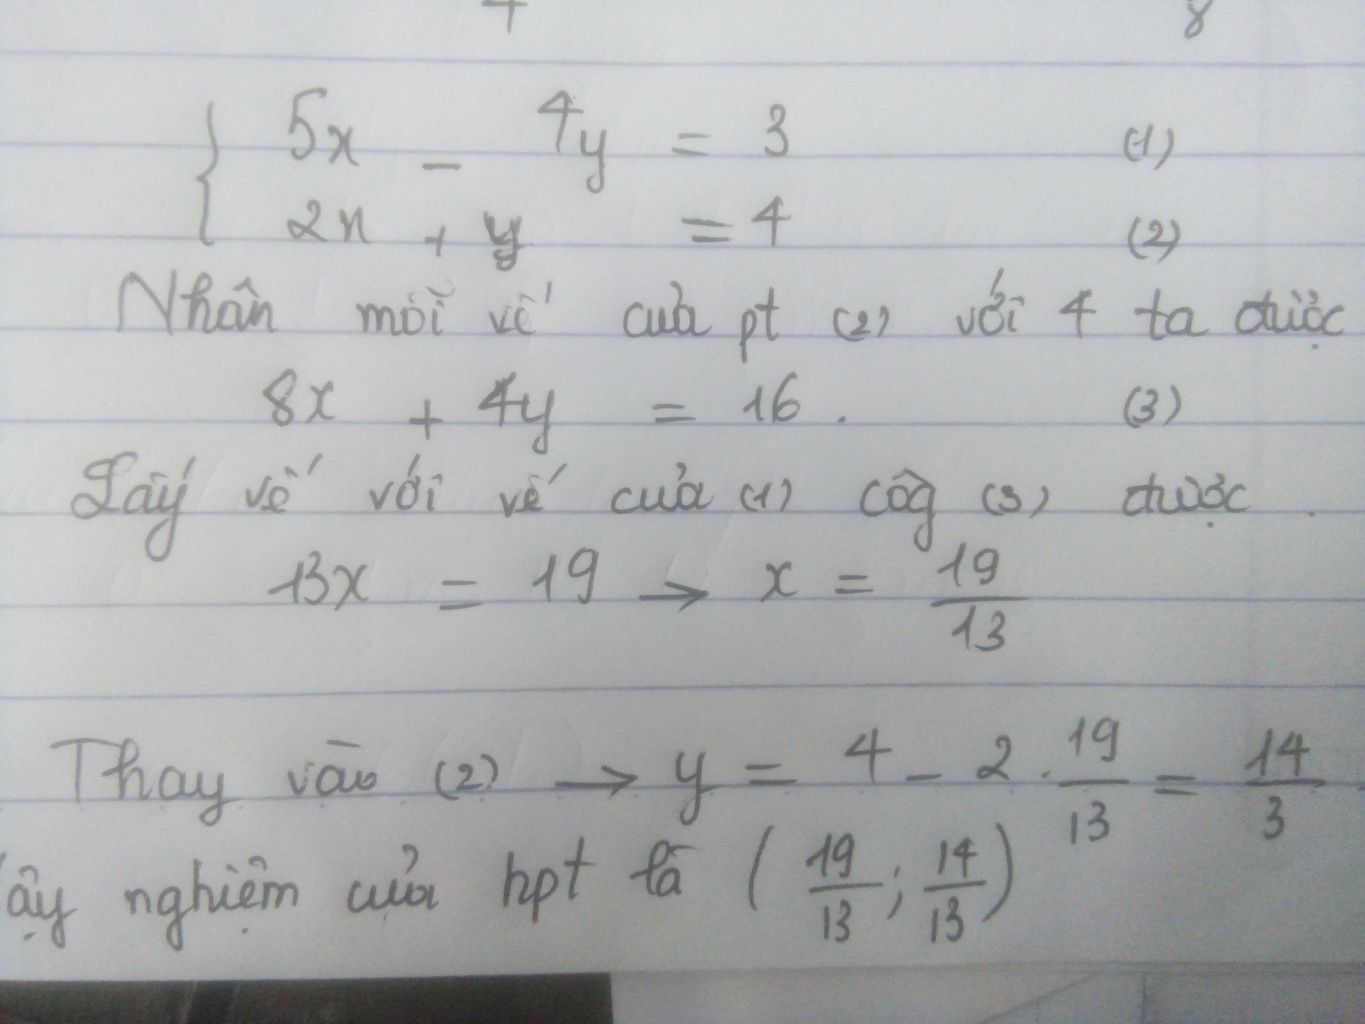 5x - 4y = 3 (1)
2x + y = 4 (2)
Nhân mỗi vế của pt (2) với 4 ta được
8x + 4y = 16. (3)
Lấy vế với vế của (1) côg (3) được
13x = 19 → x = 19/13
Thay vào (2) → y = 4 - 2.19/13 = 14/3
ậy nghiệm của hpt là (19/13; 14/13)